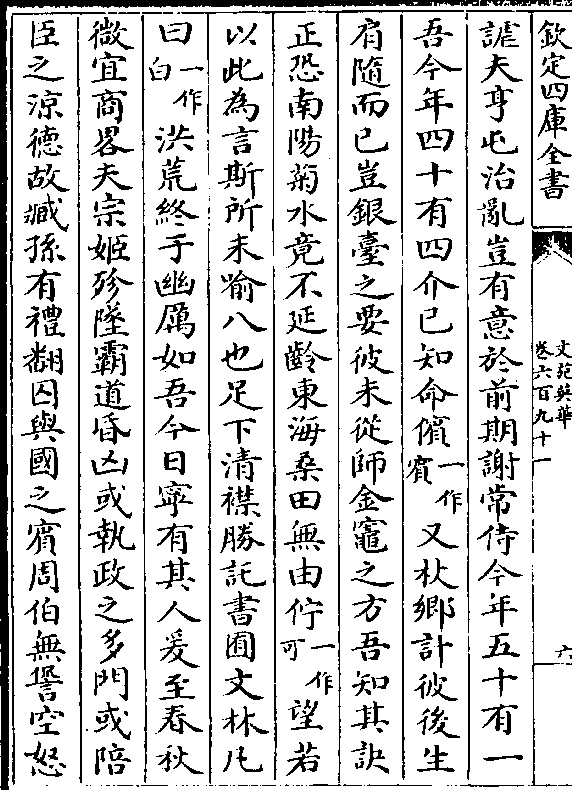 欽定四庫全書
文苑英華
卷六百九十一
六
謔夫亨屯治亂豈有意於前期謝常侍今年五十有一
吾今年四十有四介已知命儐一作賓又杖鄉計彼後生
肩隨而已豈銀臺之要彼未從師金竈之方吾知其訣
正恐南陽菊水竟不延齡東海桑田無由佇一作可望若
以此為言斯所未喻八也足下清襟勝託書囿文林凡
曰一作白洪荒終于幽厲如吾今日寧有其人爰至春秋
微宜商畧夫宗姬殄墜霸道昏凶或執政之多門或陪
臣之涼德故臧孫有禮翻囚與國之賓周伯無諐空怒